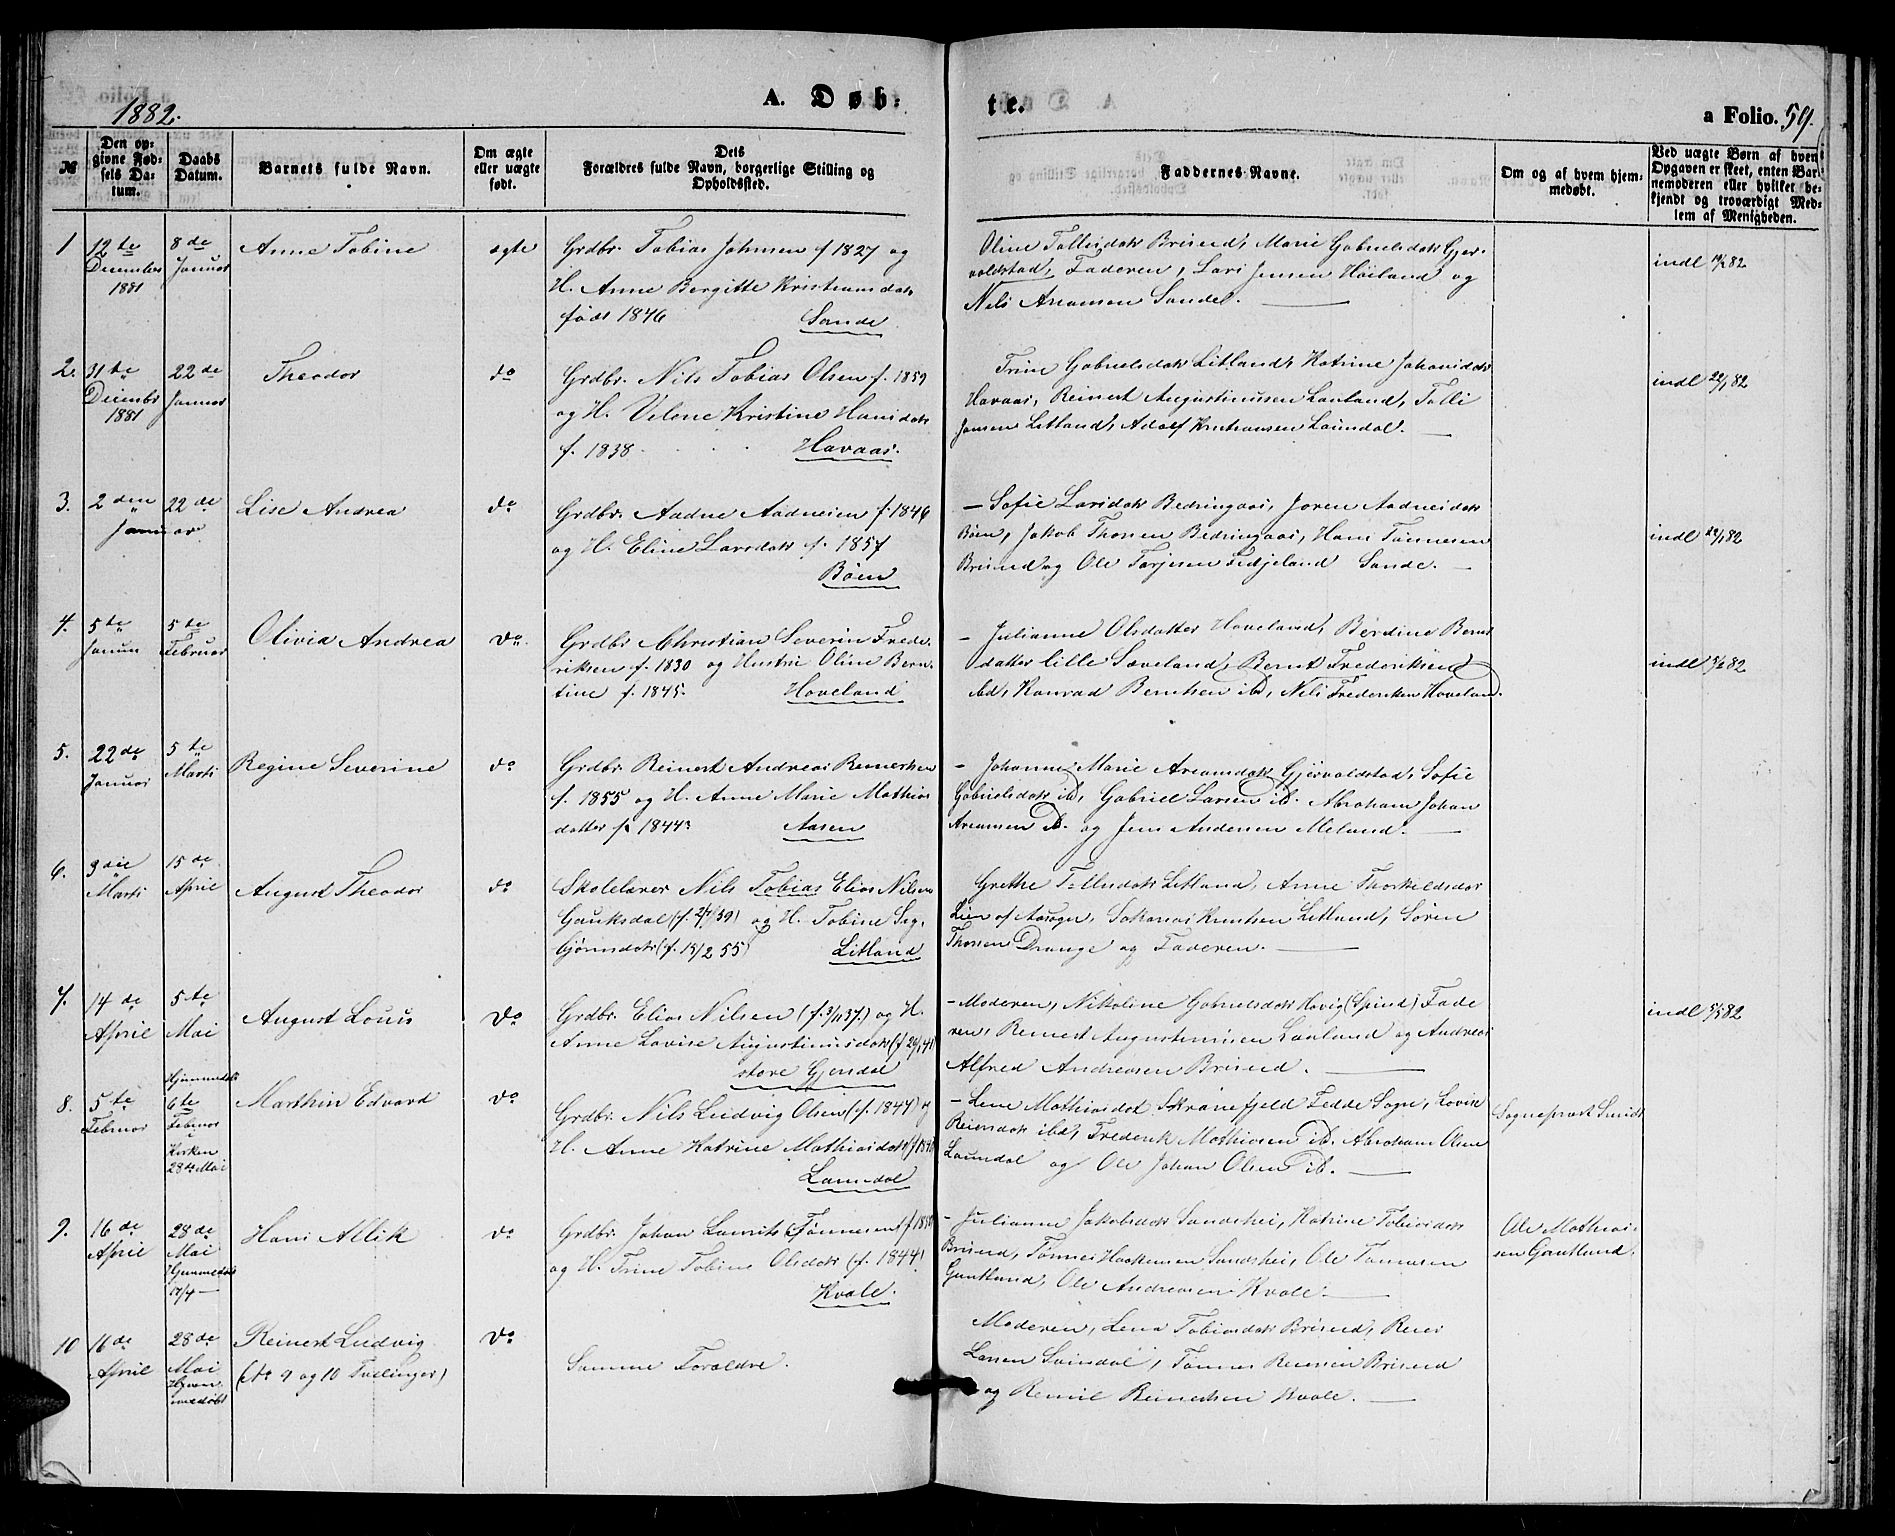 1882.
A. Døb-
te.
a Folio. 59.
№
Den op-
givne Fød-
sels Da-
tum.
Daabs
Datum.
Barnets fulde Navn.
Om ægte
eller uægte
født.
Dets
Forældres fulde Navn, borgerlige Stilling og
Opholdssted.
Faddernes Navne.
Om og af hvem hjem-
medøbt.
Ved uægte Børn af hvem
Opgaven er skeet, enten Bar-
nemoderen eller hvilket be-
kjendt og troværdigt Med-
lem af Menigheden.
1
12te
December
1881
8de
Januar
Anne Tobine
ægte
Grdbr. Tobias Johnsen f 1827 og
H. Anne Bergitte Kristiansdatr
født 1846
Sande
Oline Tollisdatr Brisend, Marie Gabrielsdatr Gjer-
valdstad, Faderen, Lars Jensen Høiland og
Nils Areansen Sandel.
indl 82
2.
31te
Decembr
1881
22de
Januar
Theodor
do
Grdbr. Nils Tobias Olsen f. 1859
og H. Vilene Kristine Hansdatr
f. 1838
Havaas.
Trine Gabrielsdatr Litland, Katrine Johansdatr
Havaas, Reinert Augustinussen Lauland, Tolli
Jansen Litland, Adolf Kristiansen Laundal.
indl 22/1 82
3.
2den
Januar
22de
Lise Andrea
do
Grdbr. Aadne Aadnesen f. 1846
og H. Eline Larsdatr f. 1857
Bøen
— Sofie Larsdatr Bedringaas, Joren Aadnesdatr
Bøen, Jakob Thorsen Bedringaas, Hans Tønnesen
Brisend og Ole Torjesen Fidjeland Sande.
indl 22/1 82
4.
5te
Januar
5te
Februar
Olivia Andrea
do
Grdbr Christian Severin Frede-
riksen f. 1830 og Hustru Oline Bern-
tine f. 1845.
Hoveland
— Julianne Olsdatter Hoveland, Berdine Bernts
datter lille Sæveland, Bernt Frederiksen
ibd, Konrad Berntsen ibd, Nils Frederiksen Hoveland.
indl 5/2 82
5.
22de
Januar
5te
Marts
Regine Severine
do
Grdbr. Reinert Andreas Reinertsen
f. 1855 og H. Anne Marie Mathias
datter f. 1844
Aasen
— Johanne Marie Areansdatr Gjervoldstad, Sofie
Gabrielsdatr ibd, Gabriel Larsen ibd. Abraham Johan
Areansen ibd. og Jens Andersen Meland.
6.
3die
Marts
15de
April
August Theodor
do
Skolelærer Nils Tobias Elias Nilsen
Gauksdal (f. 2/7/39) og H. Tobine Seg-
bjørnsdatr (f. 15/2 55)
Litland
Grethe Tollisdatr Litland, Anne Thorkildsdatr
Lien af Aasogn, Sakarias Knutsen Litland, Søren
Thorsen Drange og Faderen.
7.
14de
April
5te
Mai
August Louis
do
Grdbr. Elias Nilsen (f. 3/11 37) og H.
Anne Lovise Augustinusdatr (f 29/1 41)
store Gjendal
— Moderen, Nikoline Gabrielsdatr Høvig (Spind) Fade
ren, Reinert Augustinusen Laaland og Andreas
Alfred Andreasen Brisend.
indl 5/5 82
8.
5te
Februar
Hjemmedøbt
6te
Februar
i
Kirken
28te Mai
Marthin Edvard
do
Grdbr. Nils Ludvig Olsen (f. 1844) og
H. Anne Katrine Mathiasdatr
Laundal
— Lene Mathiasdat Skranefjeld Fedde Sogn, Lovise
Reiersdatr ibd, Frederik Mathiasen ibd. Abraham Olsen
Laundal og Ole Johan Olsen ibd.
Sogneprest Smidt
9.
16de
April
28de
Mai
Hjemmedøbt
17/4
Hans Allik
do
Grdbr. Johan Laurits Tønnesen
og H. Trine Tobine Olsdatr (f. 1844)
Kvale.
— Julianne Jakobsdatr Sandshei, Katrine Tobiasdatr
Brisend, Tønnes Haakensen Sandshei, Ole Tønnesen
Gautland, Ole Andreasen Kvale.
Ole Mathias-
sen Gautland.
10
16de
April
28de
Mai
Hjem-
medøbt
Reinert Ludvig
(No 9 og 10 Tvillinger)
do
Samme Forældre.
Moderen, Lena Tobiasdatr Brisend, Reier
Larsen Svindal, Tønnes Reiersen Brisend
og Reinert Reinertsen Kvale.